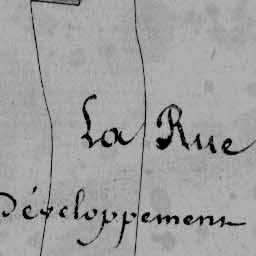 La Rue
Développement